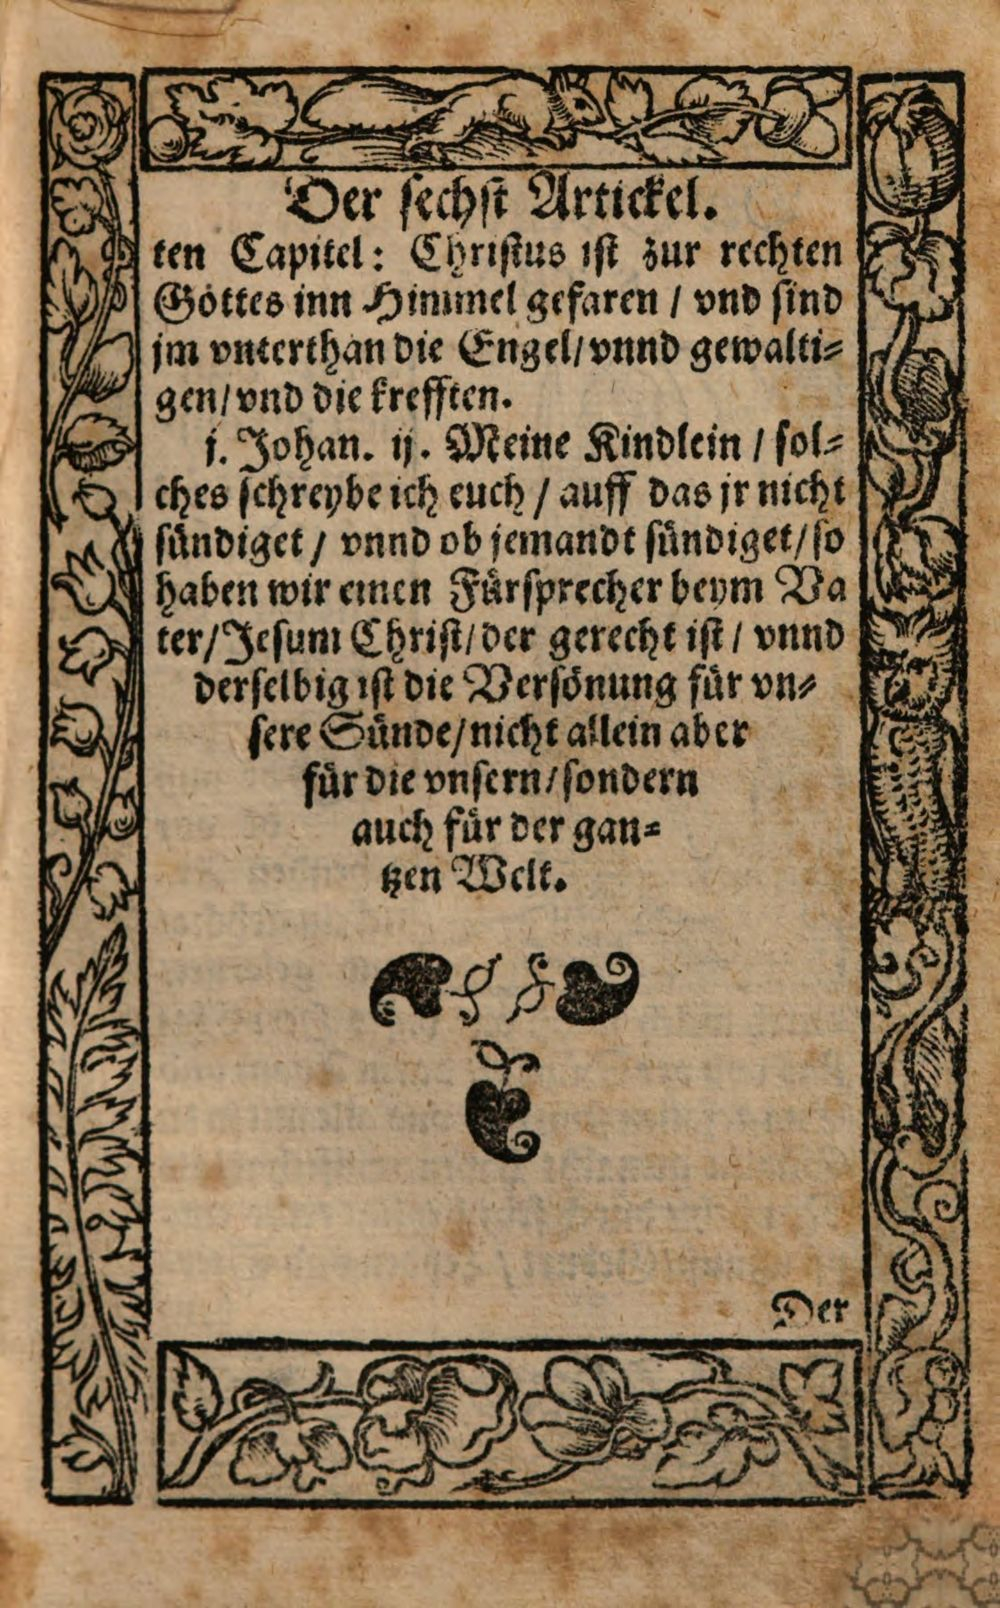 Der sechst Artickel.
ten Capitel: Christus ist zur rechten
Gottes inn Himmel gefaren / vnd sind
jm vnterthan die Engel / vnnd gewalti⸗
gen / vnd die krefften.
j. Johan. ij. Meine Kindlein / sol⸗
ches schreybe ich euch / auff das jr nicht
sündiget / vnnd ob jemandt sündiget / so
haben wir einen Fürsprecher beym Va
ter / Jesum Christ / der gerecht ist / vnnd
derselbig ist die Versönung für vn⸗
sere Sünde / nicht allein aber
für die vnsern / sondern
auch für der gan⸗
tzen Welt.
Der